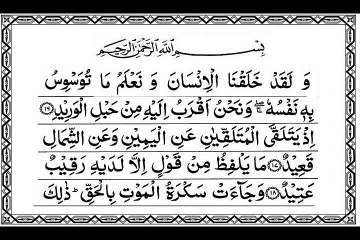 بِسْمِ اللّٰهِ الرَّحْمٰنِ الرَّحِيْمِ
وَ لَقَدْ خَلَقْنَا الْاِنْسَانَ وَ نَعْلَمُ مَا تُوَسْوِسُ
بِهٖ نَفْسُهٗ ۖۚ وَنَحْنُ اَقْرَبُ اِلَيْهِ مِنْ حَبْلِ الْوَرِيْدِ ۝۱۶
اِذْ يَتَلَقَّى الْمُتَلَقِّيٰنِ عَنِ الْيَمِيْنِ وَعَنِ الشِّمَالِ
قَعِيْدٌ ۝۱۷ مَا يَلْفِظُ مِنْ قَوْلٍ اِلَّا لَدَيْهِ رَقِيْبٌ
عَتِيْدٌ ۝۱۸ وَجَآءَتْ سَكْرَةُ الْمَوْتِ بِالْحَقِّ ؕ ذٰلِكَ